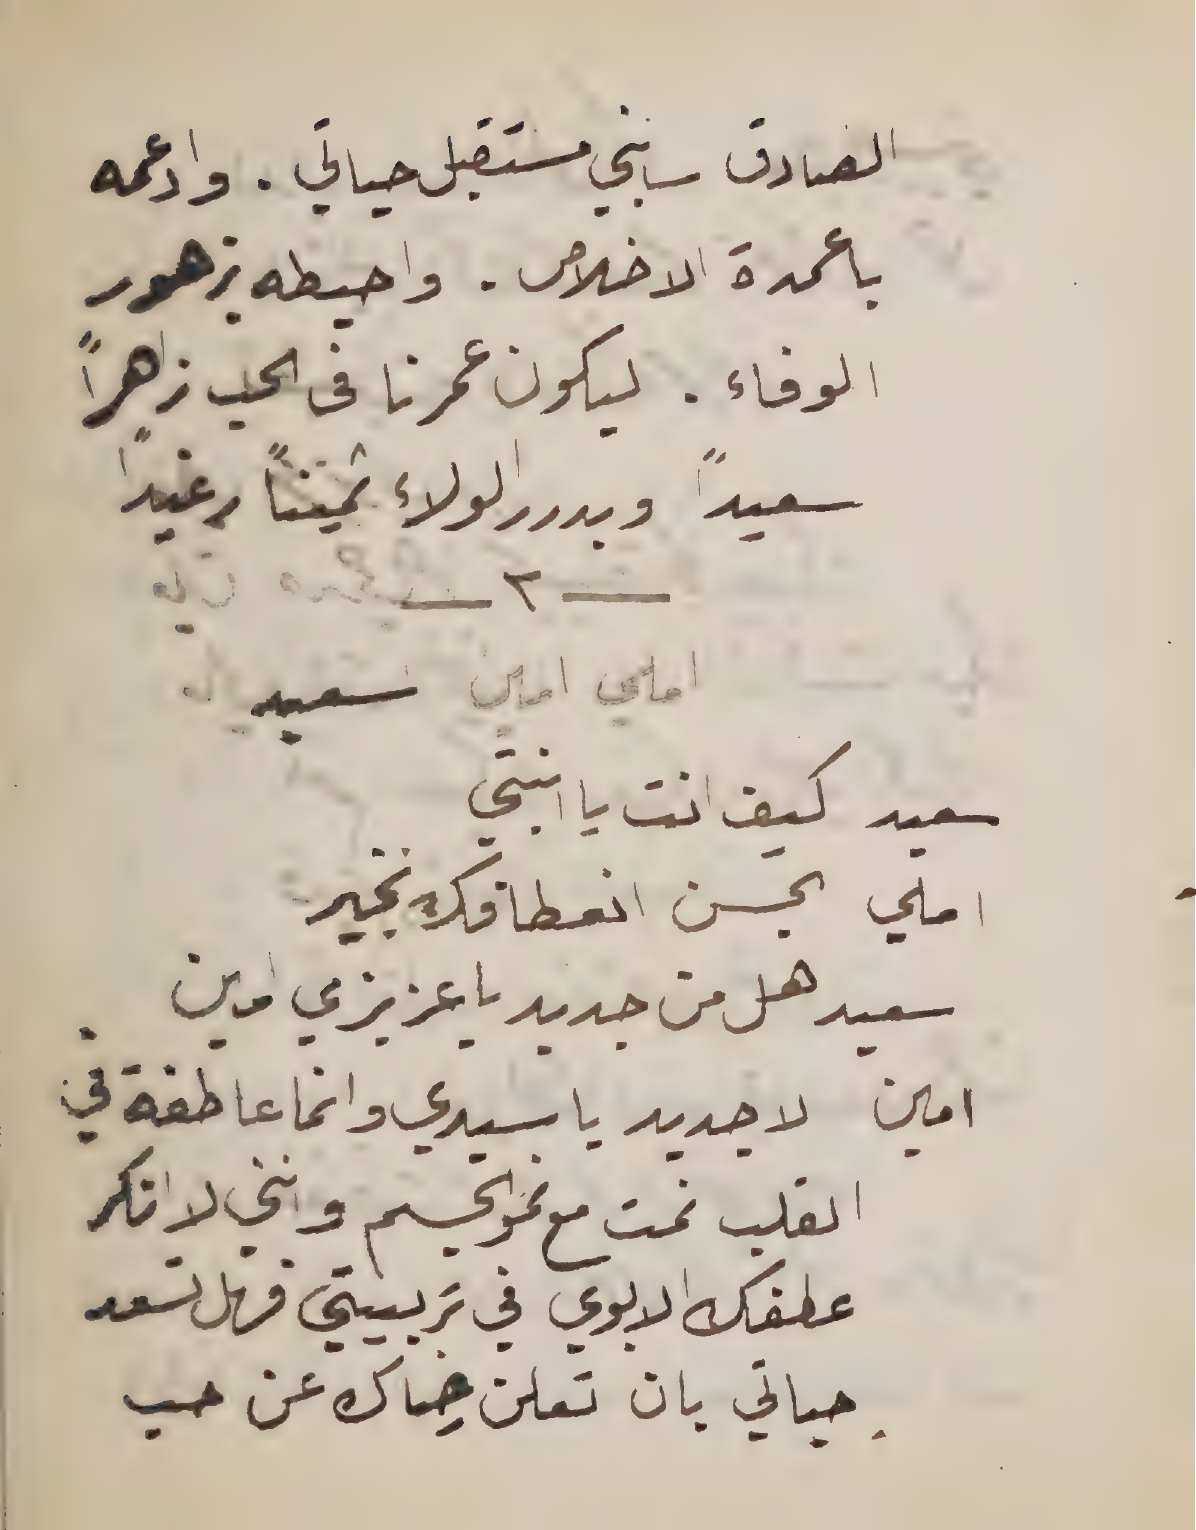 الصادق سابني مستقبل حياتي . وادعمه
باعمدة الاخلاص . واحيطه بزهور
الوفاء . ليكون عمرنا في الحب زاهراً
سعيداً وبدرر الولاء ثميناً رغيداً
— ٢ —
املي امين سعيد
سعيد كيف انت يا ابنتي
املي بحسن انعطافك بخير
سعيد هل من جديد يا عزيزي امين
امين لا جديد يا سيدي وانما عاطفة في
القلب نمت مع نمو الجسم وانني لا انكر
عطفك الابوي في تربيتي فهل تسعد
حياتي بان تعلن رضاك عن حب